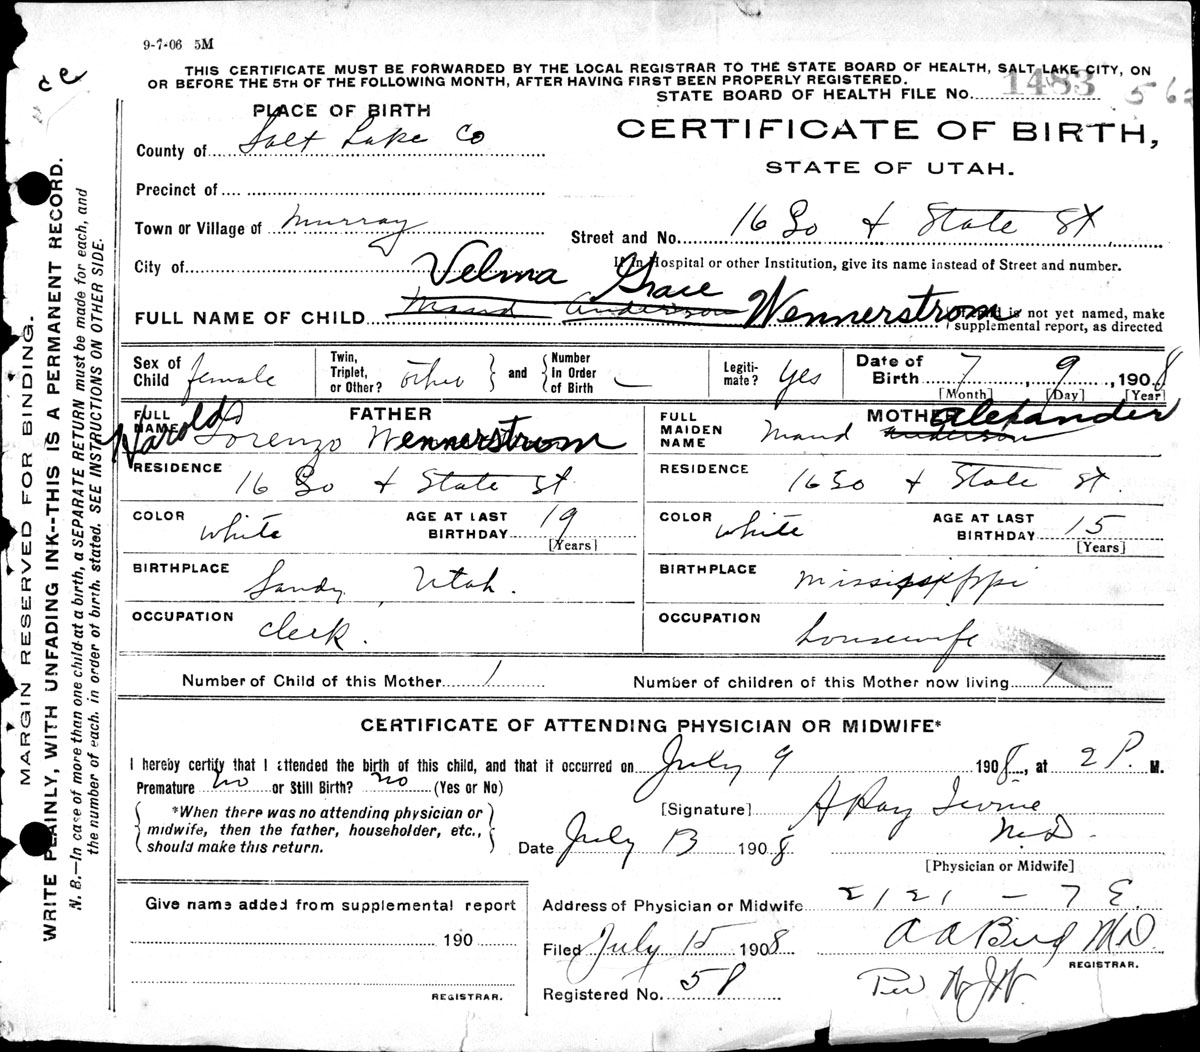 9-7-06 5M
THIS CERTIFICATE MUST BE FORWARDED BY THE LOCAL REGISTRAR TO THE STATE BOARD OF HEALTH, SALT LAKE CITY, ON
OR BEFORE THE 5TH OF THE FOLLOWING MONTH, AFTER HAVING FIRST BEEN PROPERLY REGISTERED.
STATE BOARD OF HEALTH FILE No. 1483
PLACE OF BIRTH
CERTIFICATE OF BIRTH,
STATE OF UTAH.
County of Salt Lake Co
Precinct of
Town or Village of Murray
Street and No. 16 So + State St
City of
If in Hospital or other Institution, give its name instead of Street and number.
Velma Grace Wennerstrom
FULL NAME OF CHILD Maud Anderson
If child is not yet named, make
supplemental report, as directed
Sex of Child female
Twin, Triplet, or Other? other
and
Number In Order of Birth
Legiti-mate? yes
Date of Birth 7, 9, 1908
[Month] [Day] [Year]
FATHER
FULL NAME Harold Lorenzo Wennerstrom
RESIDENCE 16 So + State St
COLOR white
AGE AT LAST BIRTHDAY 19
[Years]
BIRTHPLACE Sandy, Utah.
OCCUPATION Clerk.
MOTHER
FULL MAIDEN NAME Maud Anderson Alexander
RESIDENCE 16 So + State St.
COLOR white
AGE AT LAST BIRTHDAY 15
[Years]
BIRTHPLACE Mississippi
OCCUPATION housewife
Number of Child of this Mother 1
Number of children of this Mother now living 1
CERTIFICATE OF ATTENDING PHYSICIAN OR MIDWIFE*
I hereby certify that I attended the birth of this child, and that it occurred on July 9 1908, at 2 P. M.
Premature no or Still Birth? no (Yes or No)
*When there was no attending physician or
midwife, then the father, householder, etc.,
should make this return.
[Signature] A Ray Irvine
M.D.
Date July 13 1908
[Physician or Midwife]
Give name added from supplemental report
190
REGISTRAR.
Address of Physician or Midwife 2121 - 7 E.
Filed July 15 1908
A A Bird M.D.
REGISTRAR.
Registered No. 58
Per
MARGIN RESERVED FOR BINDING.
WRITE PLAINLY, WITH UNFADING INK--THIS IS A PERMANENT RECORD.
N. B.—In case of more than one child at a birth, a SEPARATE RETURN must be made for each, and
the number of each, in order of birth, stated. SEE INSTRUCTIONS ON OTHER SIDE.